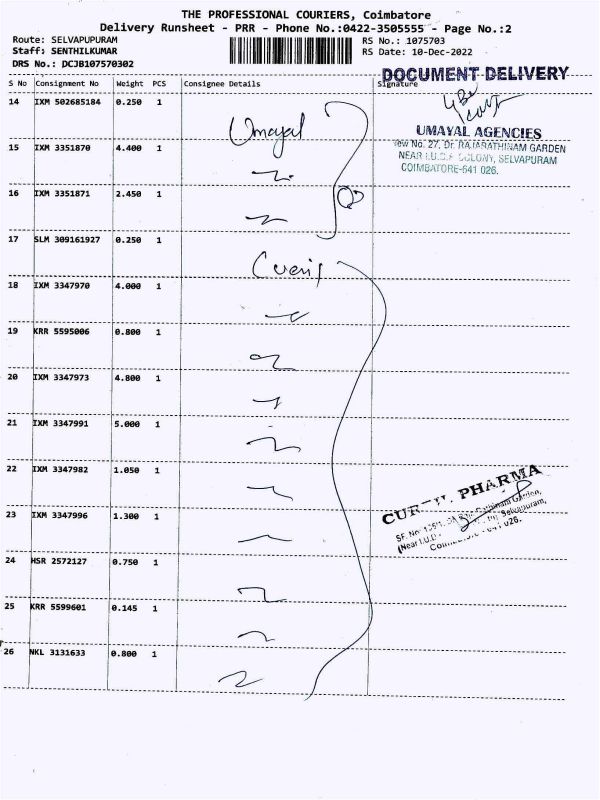 THE PROFESSIONAL COURIERS, Coimbatore
Delivery Runsheet - PRR - Phone No.:0422-3505555 - Page No.:2
Route: SELVAPUPURAM
Staff: SENTHILKUMAR
DRS No.: DCJB107570302
RS No.: 1075703
RS Date: 10-Dec-2022
S No Consignment No Weight PCS Consignee Details Signature
DOCUMENT DELIVERY
14 IXM 502685184 0.250 1
Umayal
UMAYAL AGENCIES
New No. 27, Dr. RAJARATHINAM GARDEN
NEAR I.U.D.P COLONY, SELVAPURAM
COIMBATORE-641 026.
15 IXM 3351870 4.400 1
16 IXM 3351871 2.450 1
17 SLM 309161927 0.250 1
18 IXM 3347970 4.000 1
19 KRR 5595006 0.800 1
20 IXM 3347973 4.800 1
21 IXM 3347991 5.000 1
22 IXM 3347982 1.050 1
23 IXM 3347996 1.300 1
PHARMA
SF. No.
Garden,
(Near I.U.D. Selvapuram,
026.
24 HSR 2572127 0.750 1
25 KRR 5599601 0.145 1
26 NKL 3131633 0.800 1